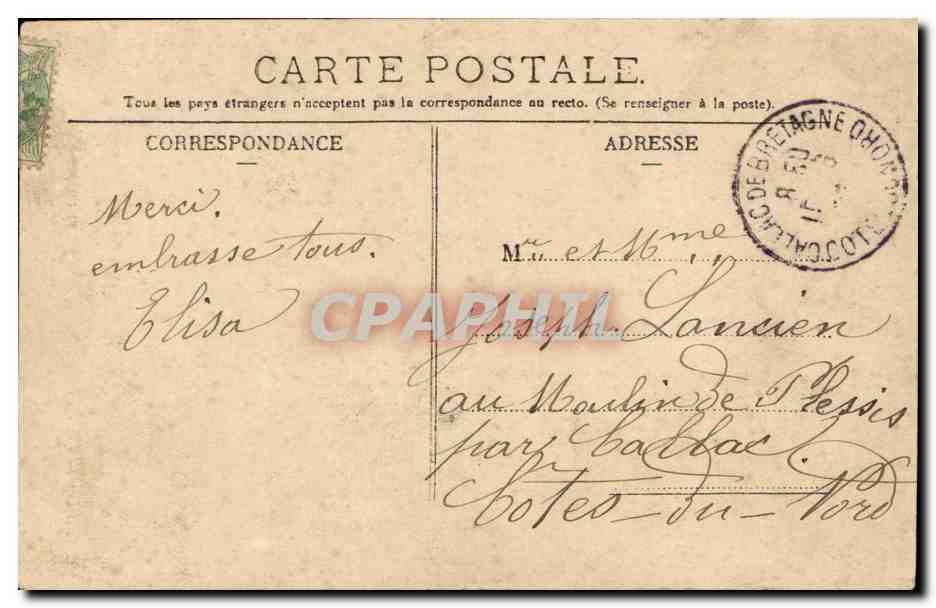 CARTE POSTALE.
Tous les pays étrangers n'acceptent pas la correspondance au recto. (Se renseigner à la poste).
CORRESPONDANCE
ADRESSE
Merci.
embrasse tous.
Elisa
Mr et Mme
Joseph Lancien
au Moulin de Plessis
par Callac.
Cotes-du-Nord
CALLAC DE BRETAGNE
CPAPHIL